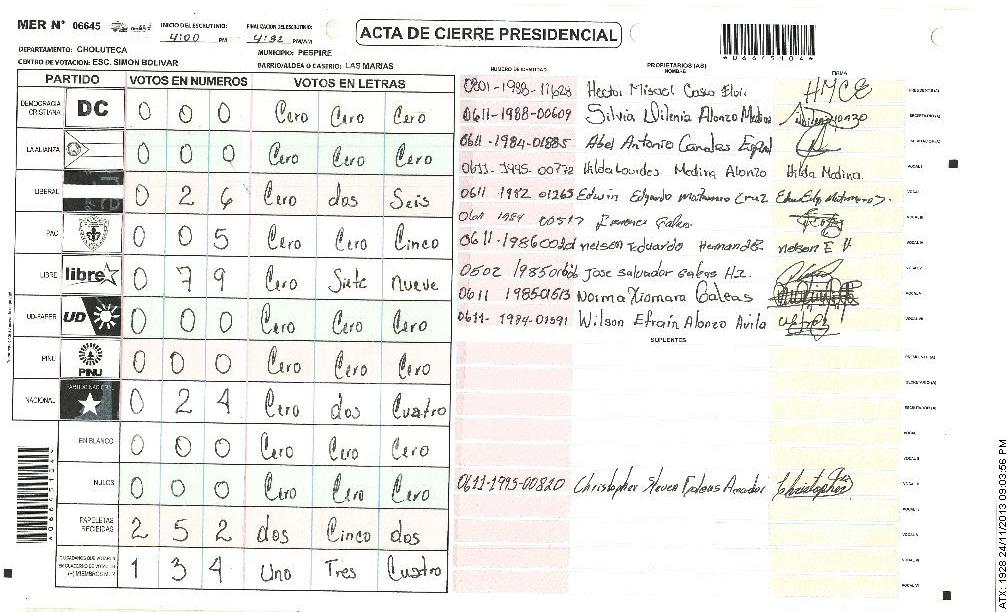 MER N° 06645
INICIO DEL ESCRUTINIO:
4:00 PM
FINALIZACION DEL ESCRUTINIO:
4:92 PM/AM
ACTA DE CIERRE PRESIDENCIAL
DEPARTAMENTO: CHOLUTECA
MUNICIPIO: PESPIRE
CENTRO DE VOTACION: ESC. SIMON BOLIVAR
BARRIO/ALDEA O CASERIO: LAS MARIAS
PARTIDO VOTOS EN NUMEROS VOTOS EN LETRAS
DEMOCRACIA CRISTIANA DC 0 0 0 Cero Cero Cero
LA ALIANZA 0 0 0 Cero Cero Cero
LIBERAL 0 2 6 Cero dos Seis
PAC 0 0 5 Cero Cero Cinco
LIBRE libre 0 7 9 Cero Siete nueve
UD-FAPER UD 0 0 0 Cero Cero Cero
PINU PINU 0 0 0 Cero Cero Cero
NACIONAL PARTIDO NACIONAL 0 2 4 Cero dos Cuatro
EN BLANCO 0 0 0 Cero Cero Cero
NULOS 0 0 0 Cero Cero Cero
PAPELETAS RECIBIDAS 2 5 2 dos Cinco dos
CIUDADANOS QUE VOTARON EN CUADERNO DE VOTACION (+) MIEMBROS MER 1 3 4 Uno Tres Cuatro
NUMERO DE IDENTIDAD PROPIETARIOS (AS) NOMBRE FIRMA
0801-1988-11628 Hector Misael HMCE PRESIDENTE (A)
0611-1988-00609 Silvia Wilenia Alonzo Medina SECRETARIO (A)
0611-1984-01885 Abel Antonio Canales ESCRUTADOR (A)
0611-1995-00772 Hilda Lourdes Medina Alonzo Hilda Medina. VOCAL I
0611 1982 01265 Edwin Edgardo Matamoros Cruz
0611-1986 nelson Eduardo Hernandez nelson E H
0502 1985 Jose Salvador Galeas Hz.
0611 1985-01513 Norma Xiomara Galeas
0611-1984-01591 Wilson Efraín Alonzo Avila
SUPLENTES
PRESIDENTE (A)
SECRETARIO (A)
ESCRUTADOR (A)
0611-1995-00820 Christopher Steven Amador Christopher
*06645104*
ATX: 1928 24/11/2013 09:03:56 PM